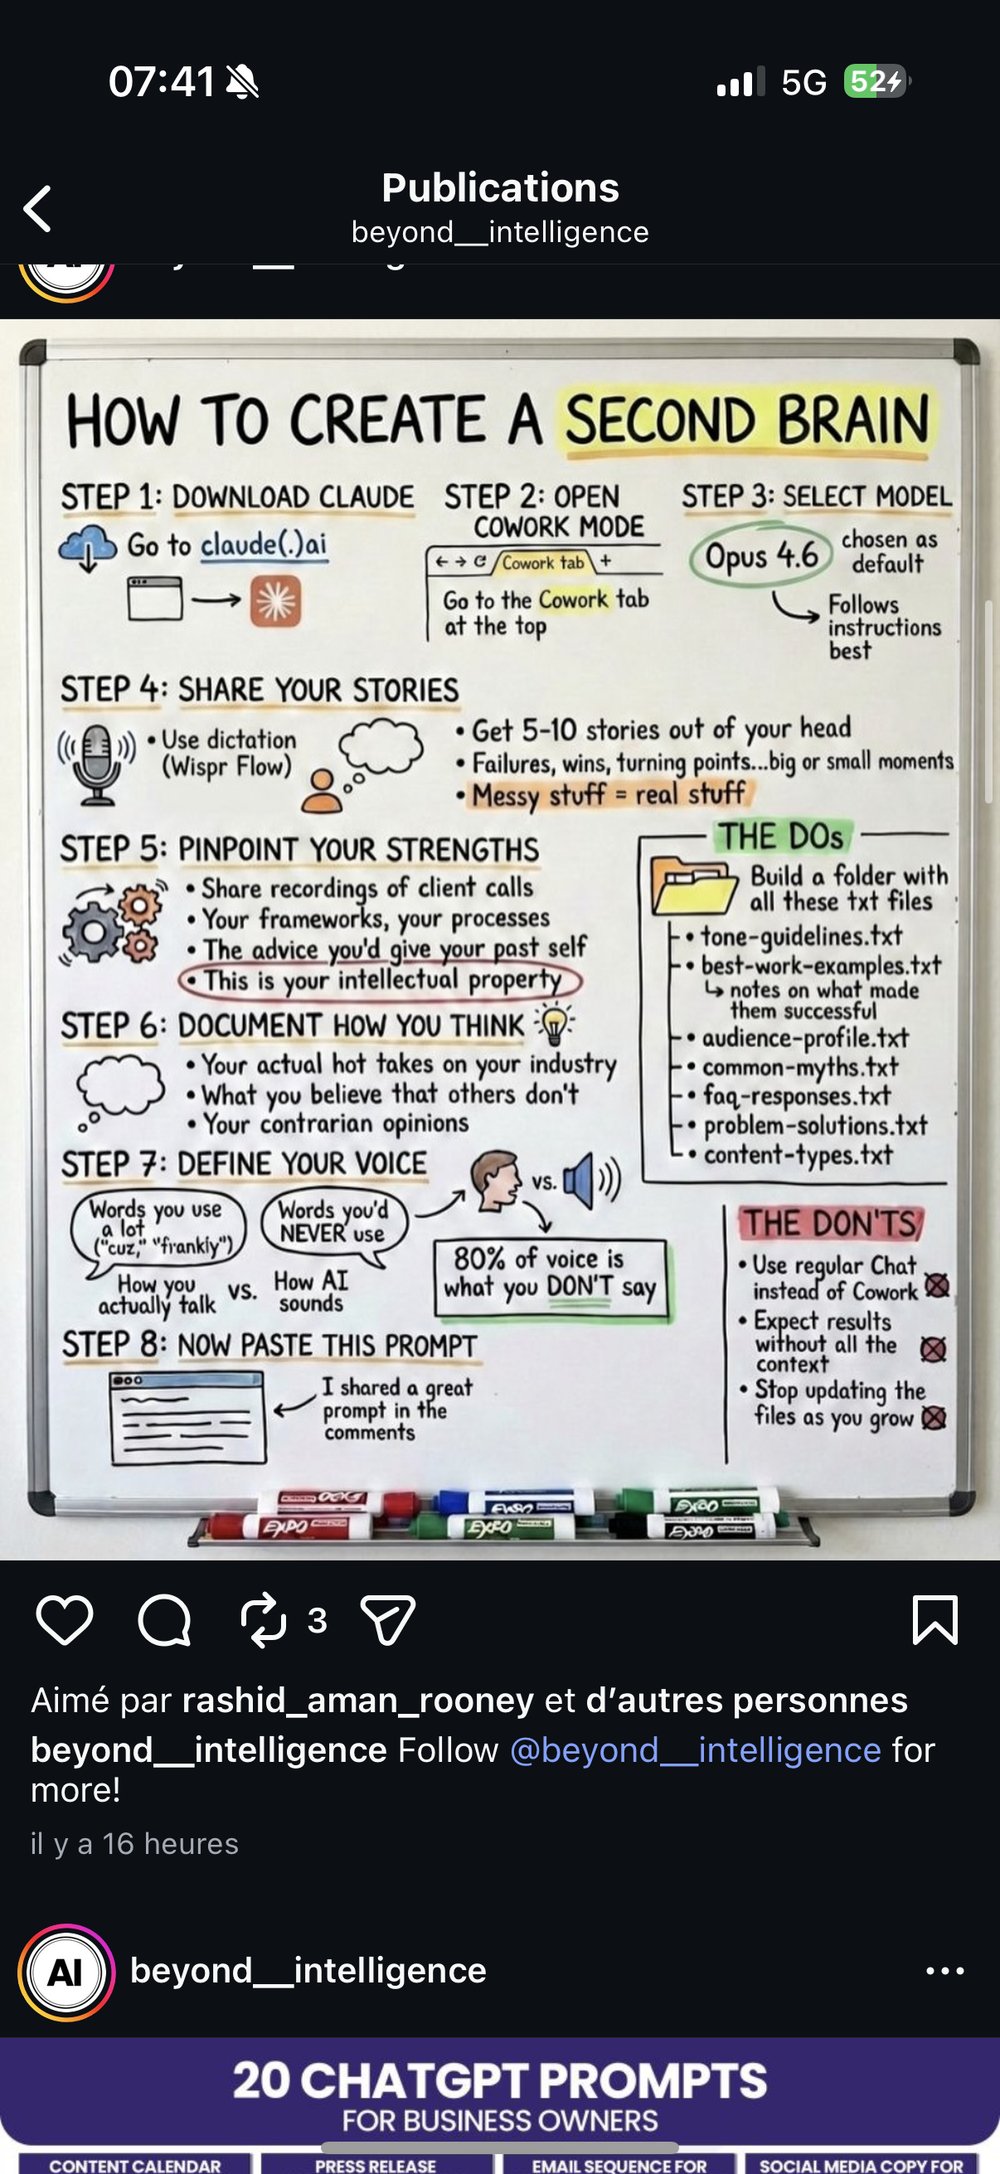 07:41
5G
52
Publications
beyond__intelligence
HOW TO CREATE A SECOND BRAIN
STEP 1: DOWNLOAD CLAUDE
Go to claude(.)ai
STEP 2: OPEN
COWORK MODE
Cowork tab
Go to the Cowork tab
at the top
STEP 3: SELECT MODEL
Opus 4.6
chosen as
default
Follows
instructions
best
STEP 4: SHARE YOUR STORIES
• Use dictation
(Wispr Flow)
• Get 5-10 stories out of your head
• Failures, wins, turning points...big or small moments
• Messy stuff = real stuff
STEP 5: PINPOINT YOUR STRENGTHS
• Share recordings of client calls
• Your frameworks, your processes
• The advice you'd give your past self
• This is your intellectual property
THE DOs
Build a folder with
all these txt files
• tone-guidelines.txt
• best-work-examples.txt
↳ notes on what made
them successful
• audience-profile.txt
• common-myths.txt
• faq-responses.txt
• problem-solutions.txt
• content-types.txt
STEP 6: DOCUMENT HOW YOU THINK
• Your actual hot takes on your industry
• What you believe that others don't
• Your contrarian opinions
STEP 7: DEFINE YOUR VOICE
Words you use
a lot
("cuz," "frankiy")
Words you'd
NEVER use
vs.
How you
actually talk
vs.
How AI
sounds
80% of voice is
what you DON'T say
THE DON'TS
• Use regular Chat
instead of Cowork
• Expect results
without all the
context
• Stop updating the
files as you grow
STEP 8: NOW PASTE THIS PROMPT
I shared a great
prompt in the
comments
EXPO
EXPO
EXPO
3
Aimé par rashid_aman_rooney et d'autres personnes
beyond__intelligence Follow @beyond__intelligence for
more!
il y a 16 heures
AI
beyond__intelligence
20 CHATGPT PROMPTS
FOR BUSINESS OWNERS
CONTENT CALENDAR
PRESS RELEASE
EMAIL SEQUENCE FOR
SOCIAL MEDIA COPY FOR